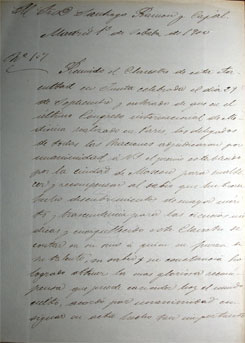 Sr. D. Santiago Ramon y Cajal.
Madrid 1º de Octubre 1900
Reunido el Claustro de esta Fa-
cultad en Junta celebrada el día 29
de Septiembre y enterado de que en el
último Congreso internacional de Me-
dicina celebrado en París los delegados
de todas las Naciones adjudicaron por
unanimidad á V.S. el premio establecido
por la ciudad de Moscou para enalte-
cer y recompensar al sabio que hubiera
hecho descubrimientos de mayor
y trascendencia para las ciencias mé-
dicas y este Claustro de
contar en su seno á quien su
su talento, su saber y su constancia ha
logrado obtener la mas gloriosa recom-
pensa que puede conceder hoy el mundo
culto, acordó por unanimidad con-
signar